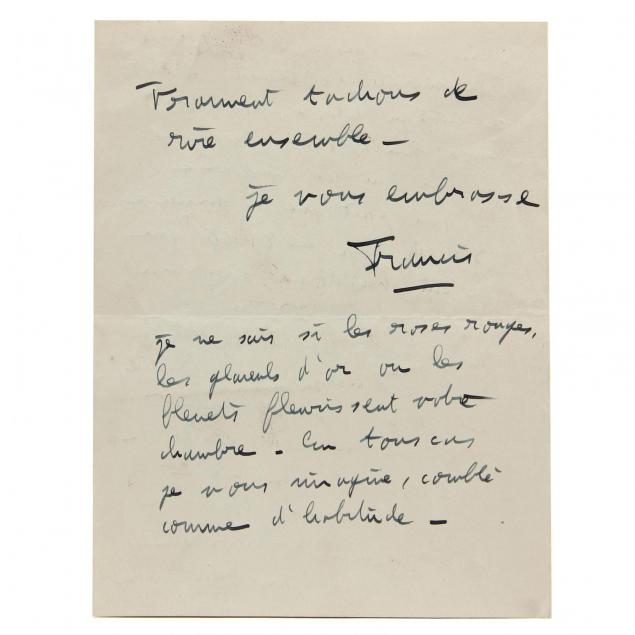 Vraiment tachons de
rire ensemble –
je vous embrasse
Francis
je ne sais si les roses rouges,
les d'or ou les
bleuets fleurissent votre
chambre – En tous cas
je vous imagine, comblé
comme d'habitude –